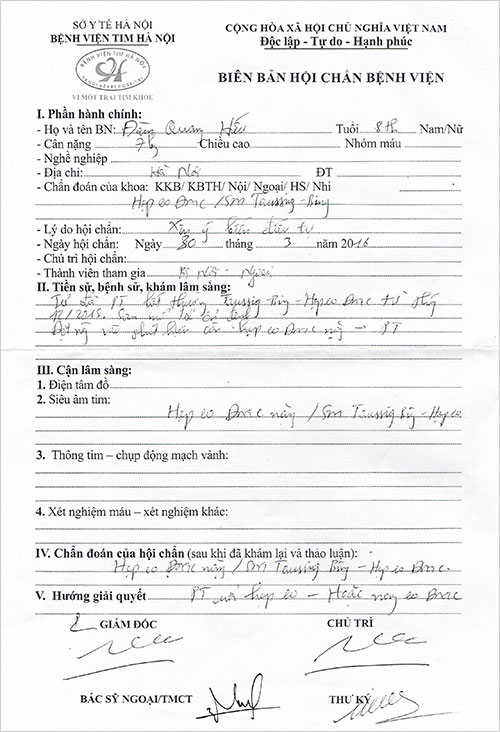 SỞ Y TẾ HÀ NỘI
BỆNH VIỆN TIM HÀ NỘI
BỆNH VIỆN TIM HÀ NỘI
HANOI HEART HOSPITAL
VÌ MỘT TRÁI TIM KHỎE
CỘNG HÒA XÃ HỘI CHỦ NGHĨA VIỆT NAM
Độc lập - Tự do - Hạnh phúc
BIÊN BẢN HỘI CHẨN BỆNH VIỆN
I. Phần hành chính:
- Họ và tên BN: Đặng Quang Hiếu Tuổi 8th Nam/Nữ
- Cân nặng 7kg Chiều cao Nhóm máu
- Nghề nghiệp
- Địa chỉ: Hà Nội ĐT
- Chẩn đoán của khoa: KKB/ KBTH/ Nội/ Ngoại/ HS/ Nhi
Hẹp eo ĐMC / SM Taussig-Bing
- Lý do hội chẩn: Xin ý kiến điều trị
- Ngày hội chẩn: Ngày 30 tháng 3 năm 2016
- Chủ trì hội chẩn:
- Thành viên tham gia Nội - Ngoại
II. Tiền sử, bệnh sử, khám lâm sàng:
PT bất thường Taussig-Bing - Hẹp eo ĐMC từ tháng
12/2015. Sau mổ
hẹp eo ĐMC nặng → PT
III. Cận lâm sàng:
1. Điện tâm đồ
2. Siêu âm tim:
Hẹp eo ĐMC nặng / SM Taussig Bing - Hẹp eo
3. Thông tim – chụp động mạch vành:
4. Xét nghiệm máu – xét nghiệm khác:
IV. Chẩn đoán của hội chẩn (sau khi đã khám lại và thảo luận):
Hẹp eo ĐMC nặng / SM Taussig Bing - Hẹp eo ĐMC.
V. Hướng giải quyết PT hẹp eo - Hoặc nong eo ĐMC
GIÁM ĐỐC CHỦ TRÌ
BÁC SỸ NGOẠI/TMCT THƯ KÝ